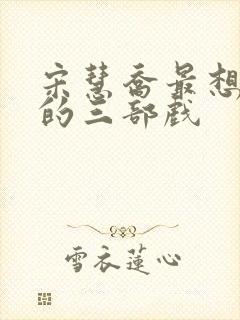 宋慧乔最想
的三部戏
雪衣莲心